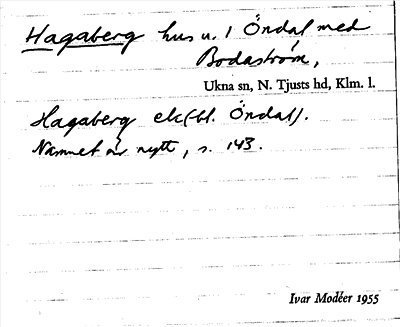 Hagaberg hus u. / Öndal med
Bodaström,
Ukna sn, N. Tjusts hd, Klm. l.
Hagaberg ek(bl. Öndal).
Namnet är nytt, s. 143.
Ivar Modéer 1955